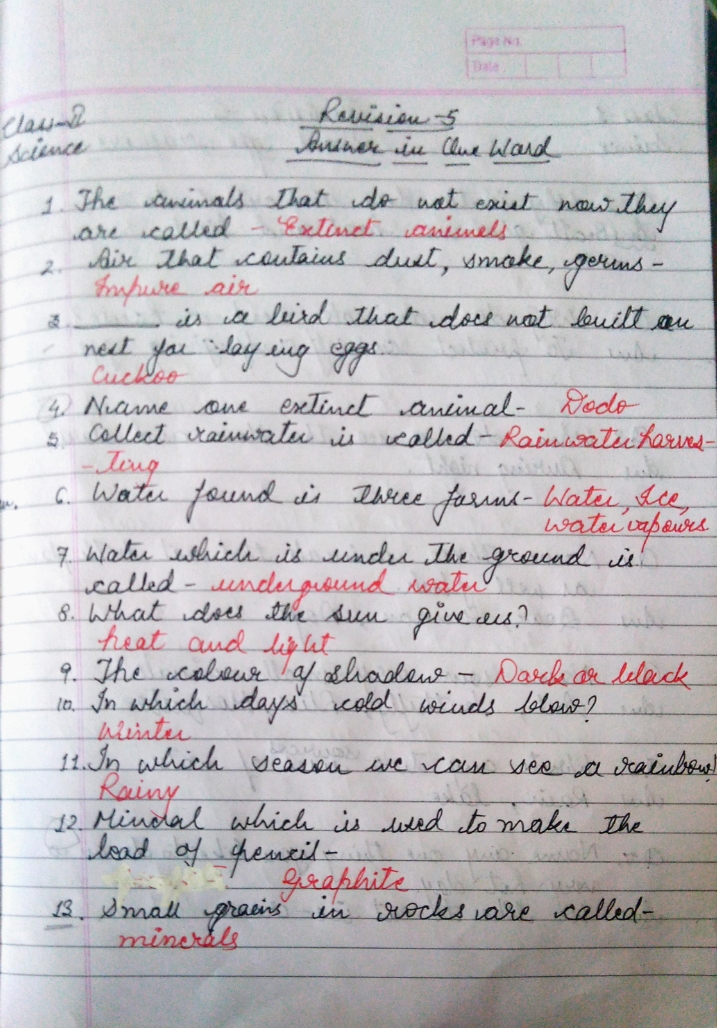 Page No.
Date
Class-2 Revision-5
Science Answer in One Word
1. The animals that do not exist now they
are called - Extinct animels
2. Air that contains dust, smoke, germs-
Impure air
3. ______ is a bird that does not built an
nest for laying eggs
Cuckoo
4. Name one extinct animal- Dodo
5. Collect rainwater is called - Rainwater harves-
-ting
6. Water found is three forms- Water, Ice,
water vapours
7. Water which is under the ground is
called - underground water
8. What does the sun give us?
heat and light
9. The colour of shadow - Dark or black
10. In which days cold winds blow?
Winter
11. In which season we can see a rainbow?
Rainy
12. Mineral which is used to make the
lead of pencil-
Graphite
13. Small grains in rocks are called-
minerals